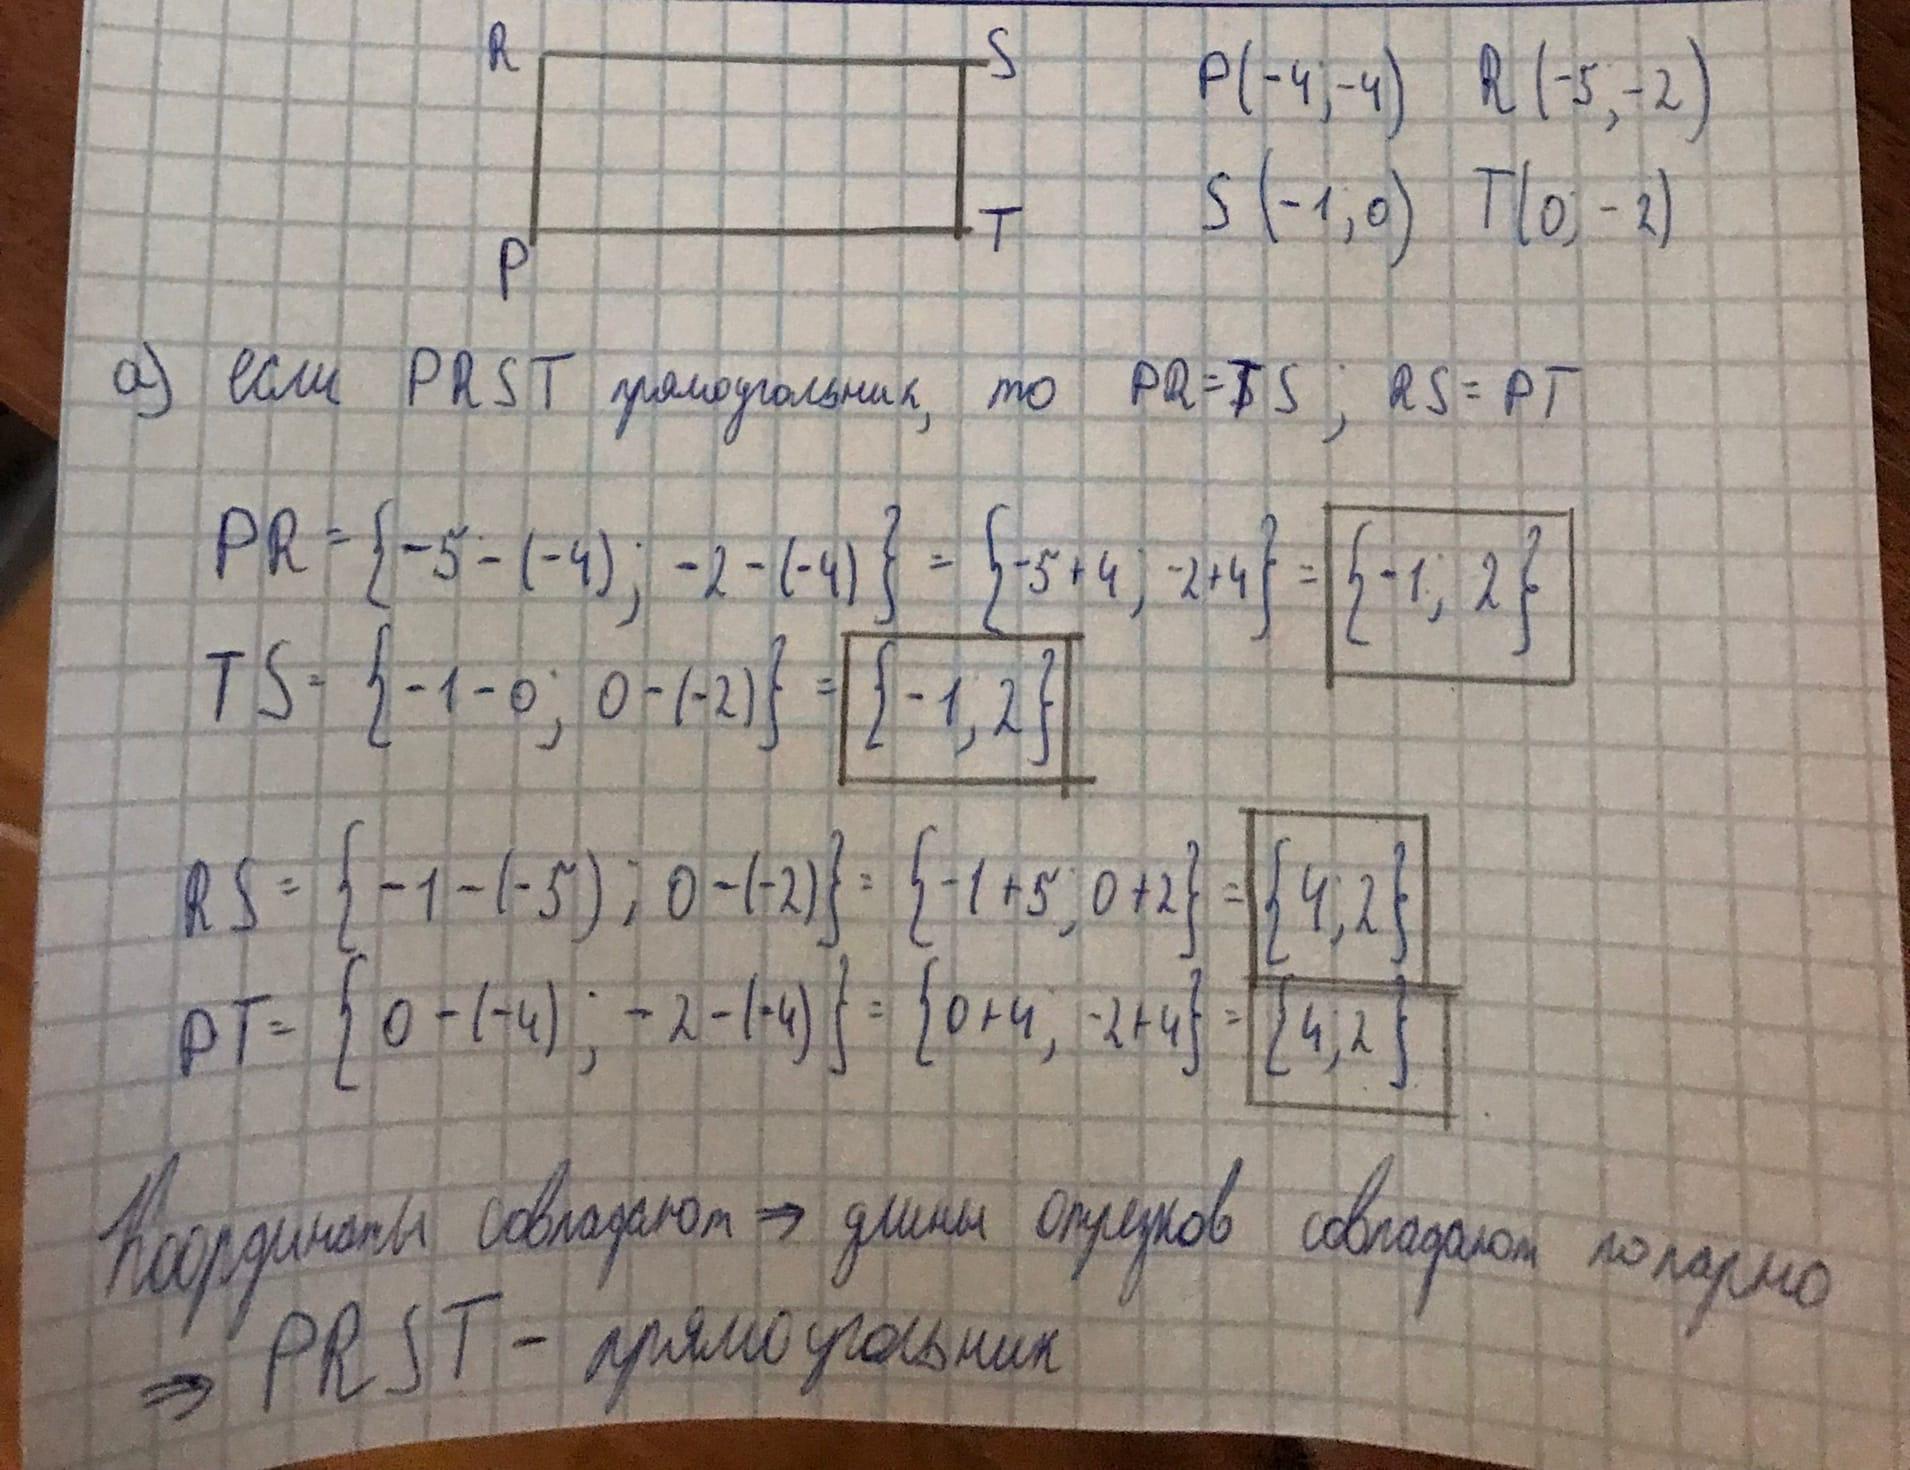 R S P(-4;-4) R(-5;-2)
P T S(-1;0) T(0;-2)
а) если PRST прямоугольник, то PR=TS; RS=PT
PR={-5-(-4); -2-(-4)} = {-5+4; -2+4} = {-1; 2}
TS= {-1-0; 0-(-2)} = {-1; 2}
RS= {-1-(-5); 0-(-2)} = {-1+5; 0+2} = {4;2}
PT= {0-(-4); -2-(-4)} = {0+4; -2+4} = {4;2}
Координаты совпадают ⇒ длины отрезков совпадают попарно
⇒ PRST - прямоугольник